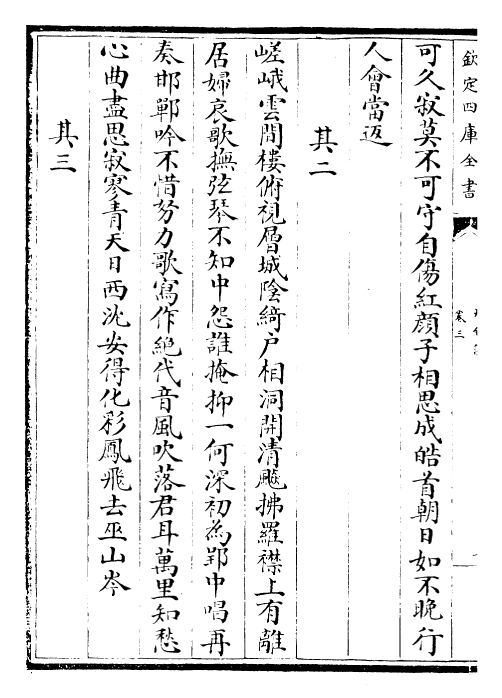 欽定四庫全書
卷三
可久寂莫不可守自傷紅顔子相思成皓首朝日如不晚行
人會當返
其二
嵯峨雲間樓俯視層城陰綺户相洞開清飈拂羅襟上有離
居婦哀歌撫弦琴不知中怨誰掩抑一何深初為郢中唱再
奏邯鄲吟不惜努力歌寫作絶代音風吹落君耳萬里知愁
心曲盡思寂寥青天日西沈安得化彩鳳飛去巫山岑
其三